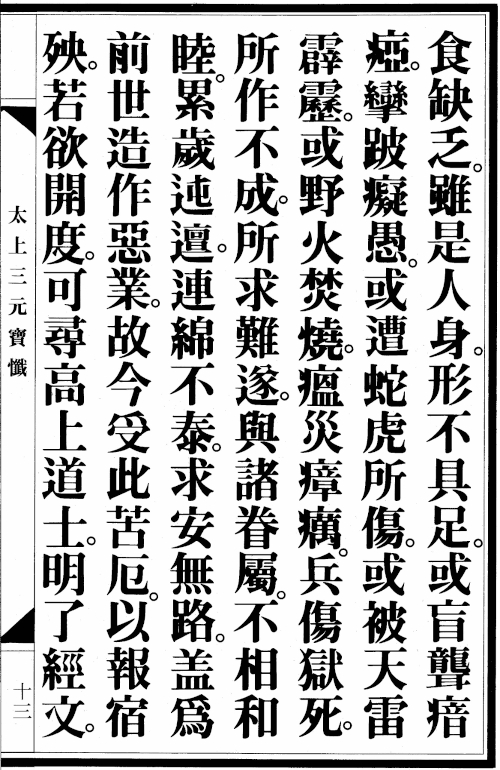 食缺乏。雖是人身。形不具足。或盲聾瘖
瘂。攣跛癡愚。或遭蛇虎所傷。或被天雷
霹靂。或野火焚燒。瘟災瘴癘。兵傷獄死。
所作不成。所求難遂。與諸眷屬。不相和
睦。累歲迍邅。連綿不泰。求安無路。盖爲
前世造作惡業。故今受此苦厄。以報宿
殃。若欲開度。可尋高上道士。明了經文。
太上三元寶懺
十三